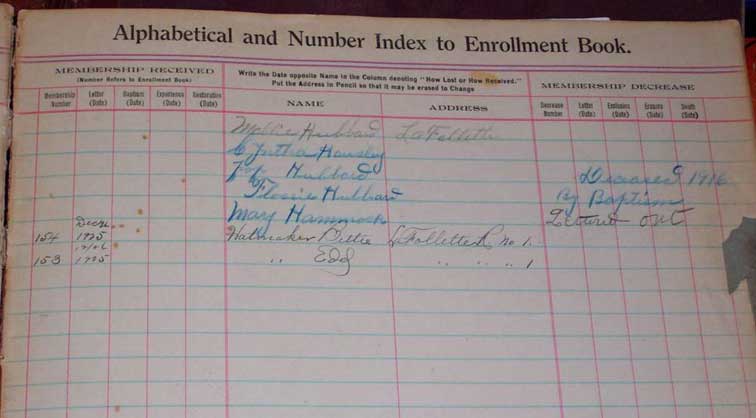 Alphabetical and Number Index to Enrollment Book.
MEMBERSHIP RECEIVED
(Number Refers to Enrollment Book)
Write the Date opposite Name in the Column denoting "How Lost or How Received."
Put the Address in Pencil so that it may be erased to Change
MEMBERSHIP DECREASE
Membership Number Letter (Date) Baptism (Date) Experience (Date) Restoration (Date) NAME ADDRESS Decrease Number Letter (Date) Exclusion (Date) Erasure (Date) Death (Date)
Mollie Hubbard LaFollette
Cyntha Hansley
Hubbard Deceased 1916
Flossie Hubbard By Baptism
Mary Hammock Lettered out
154 1925 Hatmaker Bettie LaFollette R No. 1.
153 1925 " Edd " " " 1